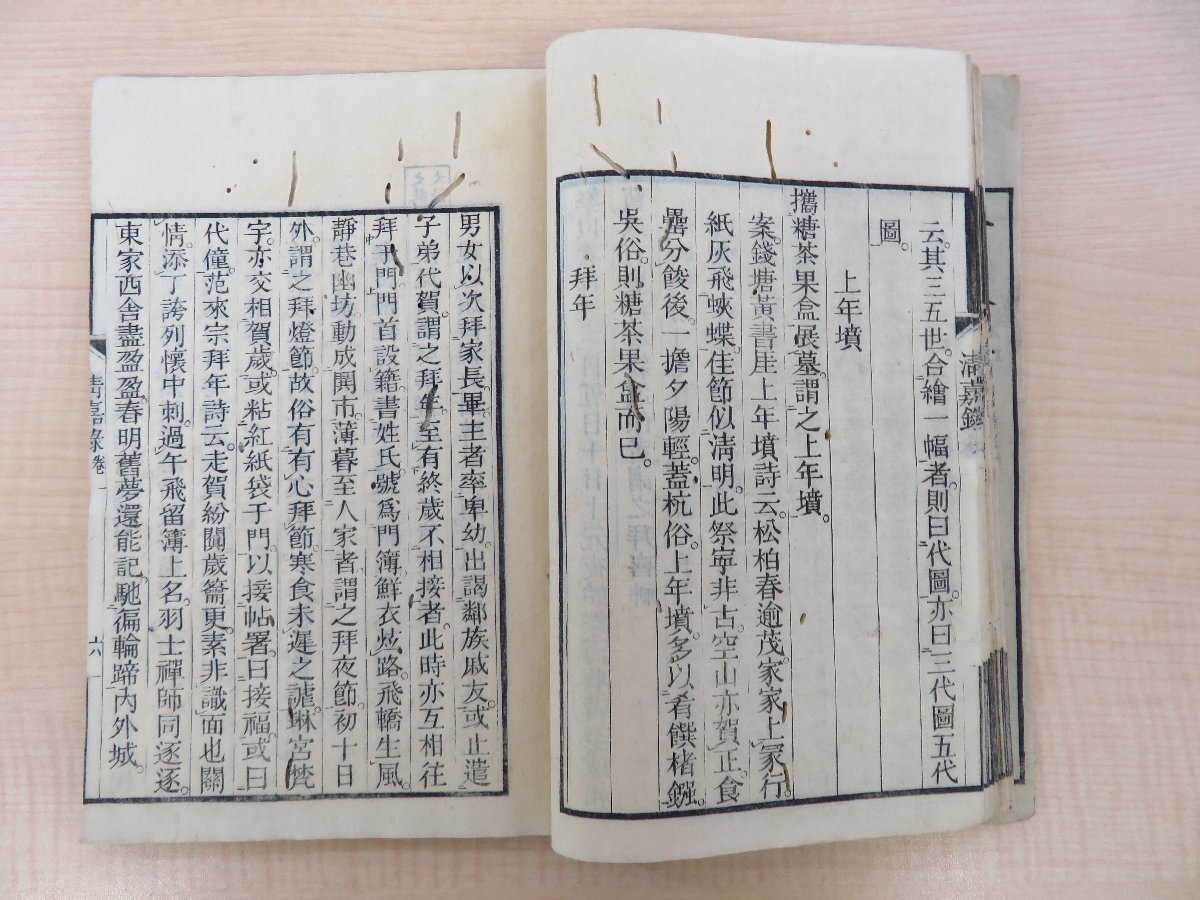 云其三五世合繪一幅者則曰代圖亦曰三代圖五代
圖。
上年墳
攜糖茶果盒展墓謂之上年墳。
案錢塘黃書厓上年墳詩云松柏春逾茂家家上冢行
紙灰飛蛺蝶佳節似淸明此祭寧非古空山亦賀正食
罍分餕後一擔夕陽輕蓋杭俗上年墳多以肴饌楮鏹。
吳俗則糖茶果盒而已。
拜年
清嘉錄
男女以次拜家長畢主者率卑幼出謁鄰族戚友或止遣
子弟代賀謂之拜年至有終歲不相接者此時亦互相往
拜于門門首設籍書姓氏號爲門簿鮮衣炫路飛轎生風。
靜巷幽坊動成鬨市薄暮至人家者謂之拜夜節初十日
外謂之拜燈節故俗有有心拜節寒食未遲之謔琳宮梵
宇亦交相賀歲或粘紅紙袋于門以接帖署曰接福或曰
代僮范來宗拜年詩云走賀紛闐歲籥更素非識面也關
情添丁誇列懷中刺過午飛留簿上名羽士禪師同逐逐。
東家西舍盡盈盈春明舊夢還能記馳徧輪蹄內外城。
清嘉錄 卷一
六